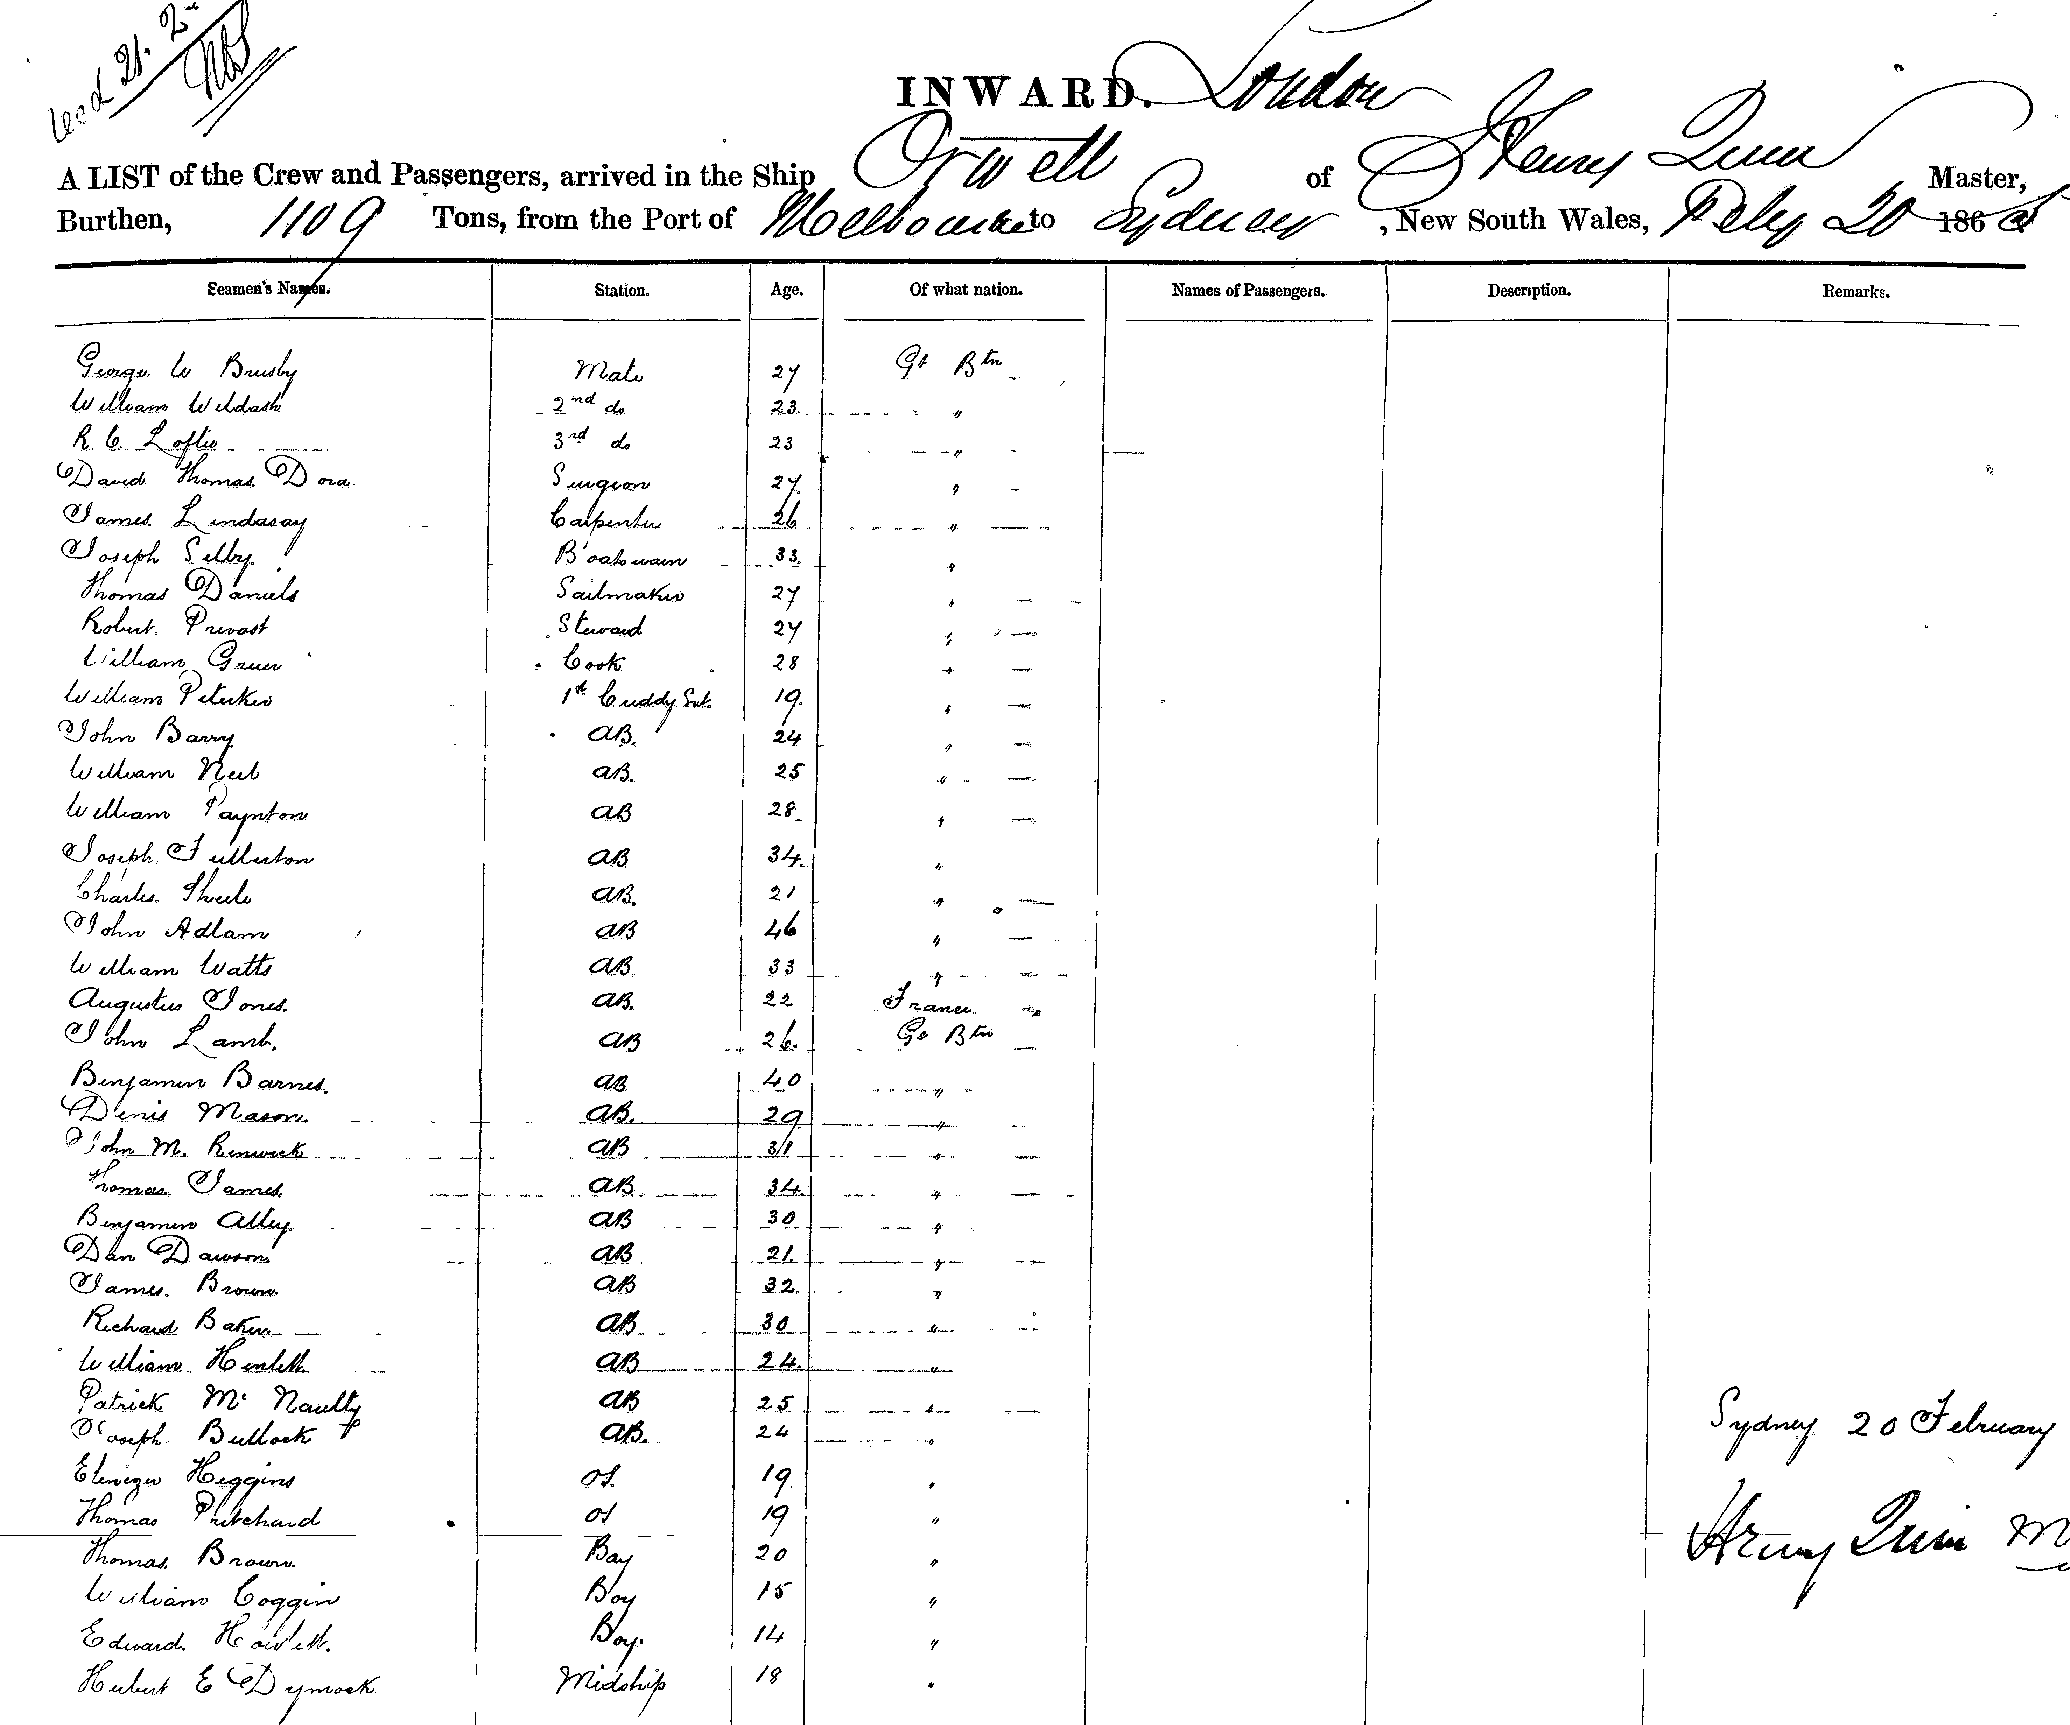 21. 2
INWARD. London
A LIST of the Crew and Passengers, arrived in the Ship Orwell of Henry Quin Master,
Burthen, 1109 Tons, from the Port of Melbourne to Sydney, New South Wales, Feby 20 186
Seamen's Names. Station. Age. Of what nation. Names of Passengers. Description. Remarks.
George W Brusby Mate 27 Gt Btn
William Wildash 2nd do 23 "
R. C. Loftie 3rd do 23 "
David Thomas Dora Surgeon 27 "
James Lindasay Carpenter 26 "
Joseph Selby Boatswain 33 "
Thomas Daniels Sailmaker 27 "
Robert Prevost Steward 27 "
William Green Cook 28 "
William Peterken 1st Cuddy Svt. 19. "
John Barry AB. 24 "
William AB. 25 "
William Paynton AB 28 "
Joseph Fullerton AB 34. "
Charles AB. 21 "
John Adlam AB 46 "
William Watts AB 33 "
Augustus Jones. AB. 22 France
John Lamb. AB 26. Gt Btn
Benjamin Barnes. AB 40 "
Denis Mason AB. 29 "
John M. Renwick AB 31 "
Thomas James AB 34. "
Benjamin Alley AB 30 "
Dan Dawson AB 21. "
James. Brown AB 32. "
Richard Baker AB 30 "
William Hewlett AB 24. "
Patrick Mc Naulty AB 25 "
Joseph Bullock AB. 24 " Sydney 20 February
Ebenezer Higgins OS. 19 "
Thomas Pritchard OS 19 " Henry Quin M
Thomas Brown Boy 20 "
William Coggin Boy 15 "
Edward Howlett. Boy. 14 "
Hubert E Dymock Midship 18 "